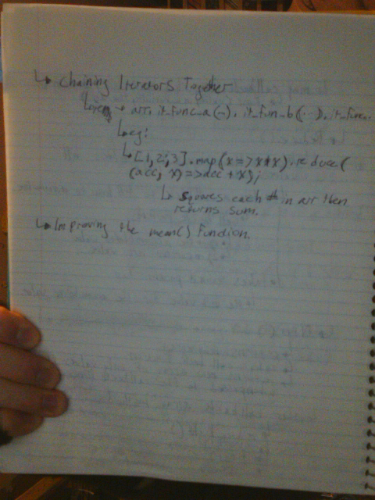 ↳ Chaining Iterators Together
↳ arr.it_func_a(~).it_func_b(~).it_func
↳ eg:
↳ [1,2,3].map(x=>x*x).reduce(
(acc, x)=>acc+x);
↳ squares each in arr then
returns sum.
↳ Improving the mean() Function.